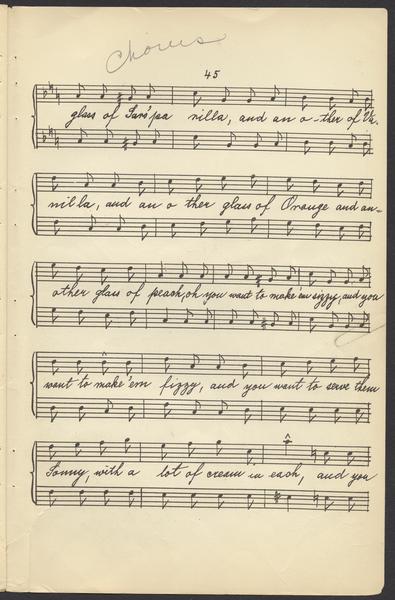 Chorus
45
glass of Sars'pa nilla, and an o-ther of Va-
nilla, and an o ther glass of Orange and an-
other glass of peach, oh you want to make 'em sizzy, and you
want to make 'em fizzy, and you want to serve them
Sonny, with a lot of cream in each, and you